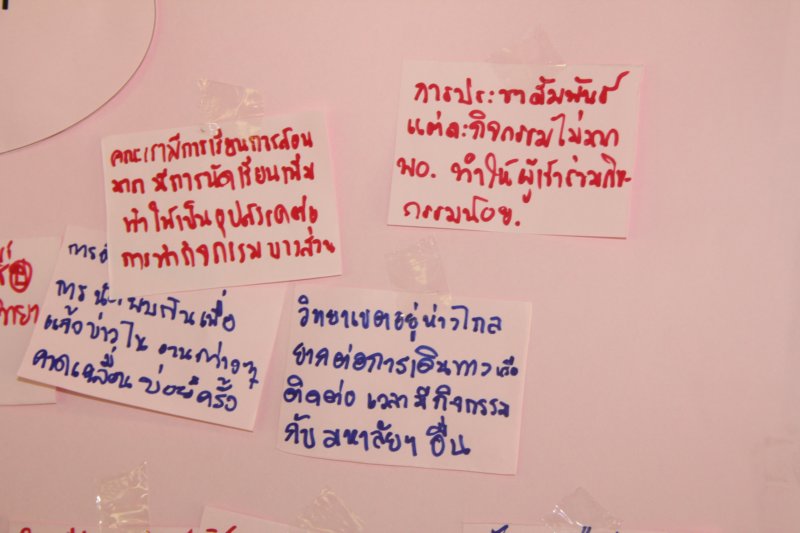 คณะเรามีการเรียนการสอน
มาก มีการนัดเรียนเพิ่ม
ทำให้เป็นอุปสรรคต่อ
การทำกิจกรรมบางส่วน
การประชาสัมพันธ์
แต่ละกิจกรรมไม่มาก
พอ. ทำให้ผู้เข้าร่วมกิจ-
กรรมน้อย.
การ
เพื่อ
แจ้งข่าวใน งานต่างๆ
คาดเคลื่อน บ่อยครั้ง
วิทยาเขตอยู่ห่างไกล
ยากต่อการเดินทาง หรือ
ติดต่อ เวลา มีกิจกรรม
กับ มหาลัยฯ อื่น